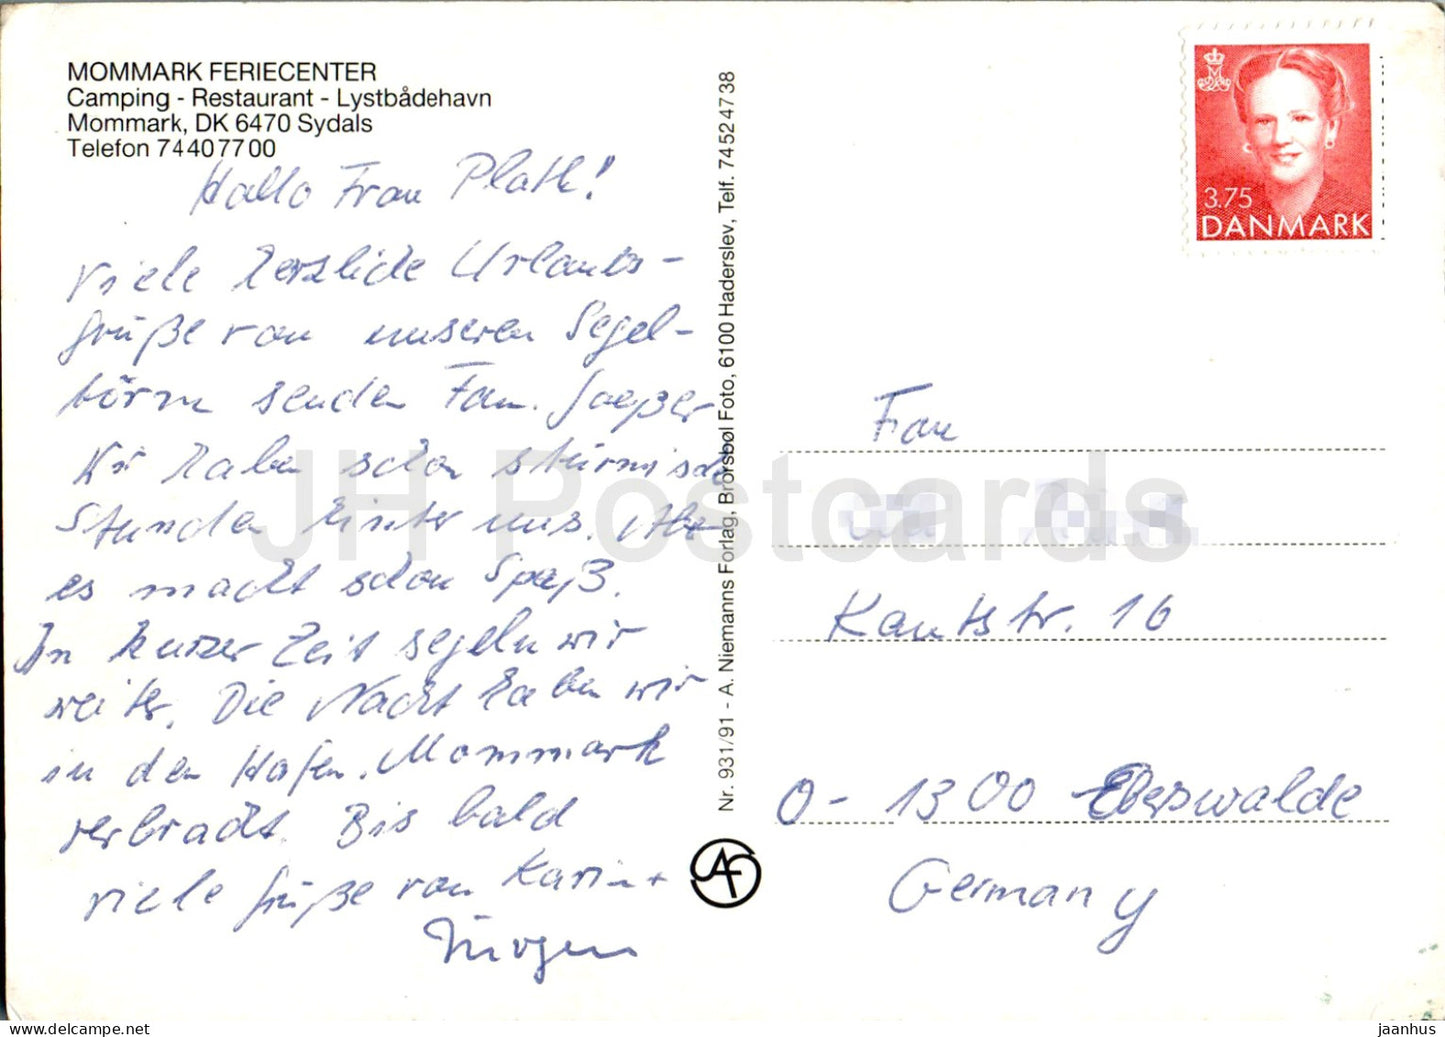 MOMMARK FERIECENTER
Camping - Restaurant - Lystbådehavn
Mommark, DK 6470 Sydals
Telefon 74 40 77 00
Hallo Frau Plath!
Viele herzliche Urlaubs-
grüße von unseren Segel-
törn senden Fam.
Wir haben schon stürmische
Stunden hinter uns. Aber
es macht schon Spaß.
In kurzer Zeit segeln wir
weiter. Die Nacht haben wir
in den Hafen Mommark
verbracht. Bis bald
viele Grüße von Karin +
Jürgen
Nr. 931/91 - A. Niemanns Forlag, Brorsbøl Foto, 6100 Haderslev, Telf. 74 52 47 38
3.75
DANMARK
Frau
Kantstr. 16
O-1300 Eberswalde
Germany
JH Postcards
www.delcampe.net
jaanhus